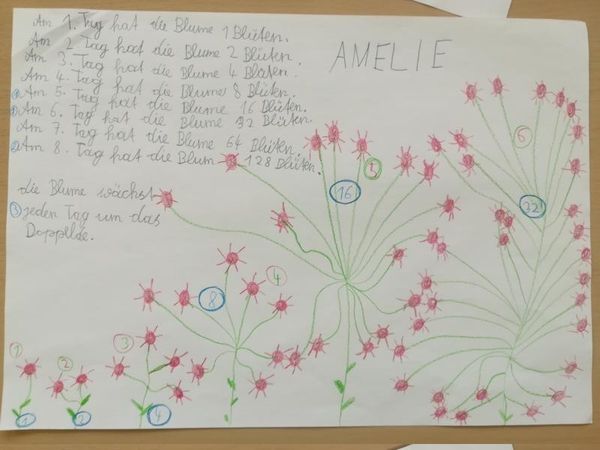 Am 1. Tag hat die Blume 1 Blüten.
Am 2. Tag hat die Blume 2 Blüten.
Am 3. Tag hat die Blume 4 Blüten.
Am 4. Tag hat die Blume 8 Blüten.
Am 5. Tag hat die Blume 16 Blüten.
Am 6. Tag hat die Blume 32 Blüten.
Am 7. Tag hat die Blume 64 Blüten.
Am 8. Tag hat die Blum 128 Blüten.
AMELIE
die Blume wächst
3 jeden Tag um das
Doppelte.
1
2
3
4
5
6
1
2
4
8
16